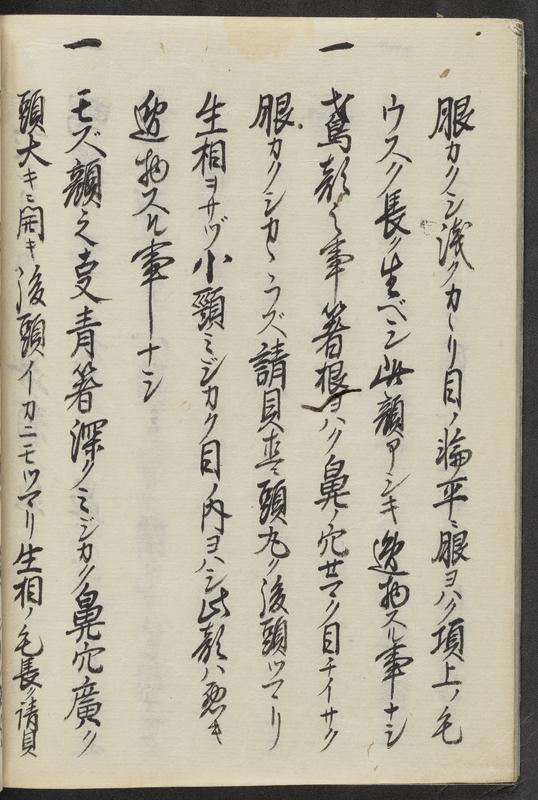 眼カクシ浅クカヽリ目ノ輪平ニ眼ヨハク項上ノ毛
ウスク長ク生ベシ此顔アシキ逸物スル事ナシ
一 鳶顔之事箸根ヨハク鼻ノ穴セマク目チイサク
眼カクシカヽラズ請貝 頭丸ク後頭ツマリ
生相ヨサヅ小頸ミジカク目ノ内ヨハシ此顔ハ悪キ
逸物スル事ナシ
一 モズ顔之事青箸深クミジカク鼻穴廣ク
頭大キニ開キ後頭イカニモツマリ生相ノ毛長ク請貝